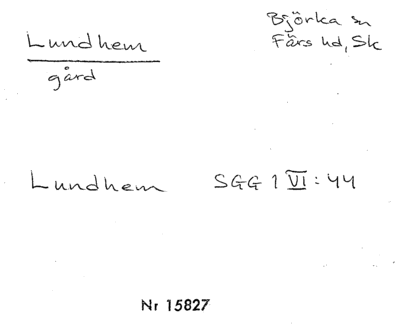 Lundhem
gård
Björka sn
Färs hd, Sk
Lundhem SGG 1 VI: 44
Nr 15827